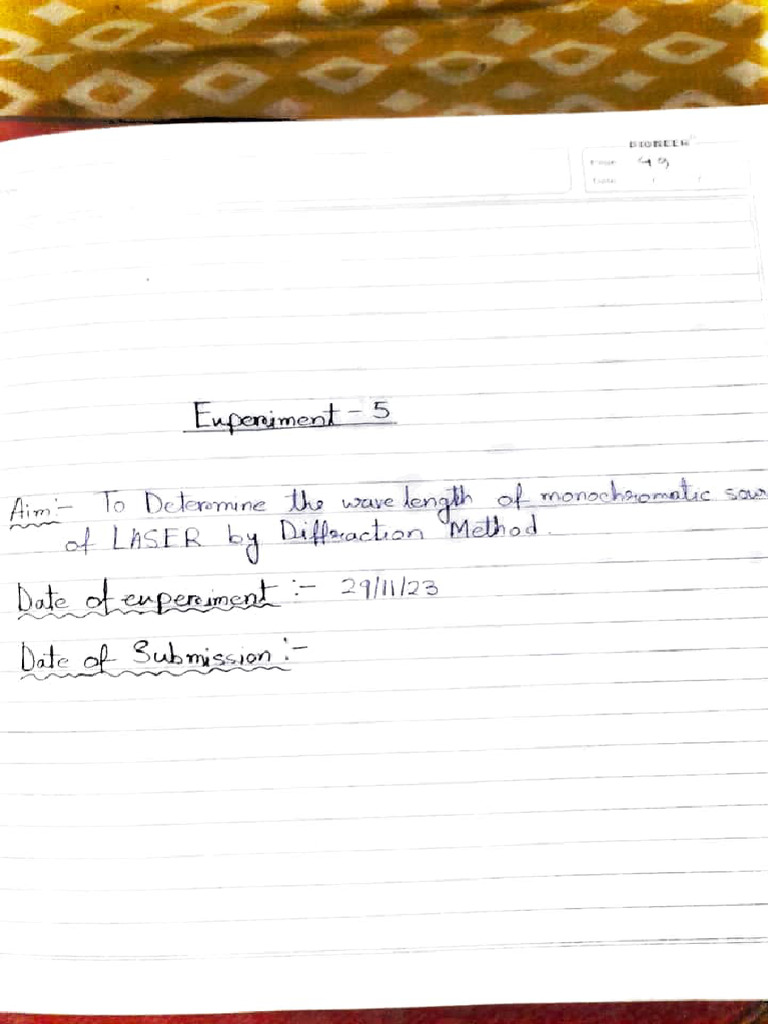 Page
Date / /
Experiment - 5
Aim:- To Determine the wave length of monochromatic
of LASER by Diffraction Method.
Date of experiment :- 29/11/23
Date of Submission :-